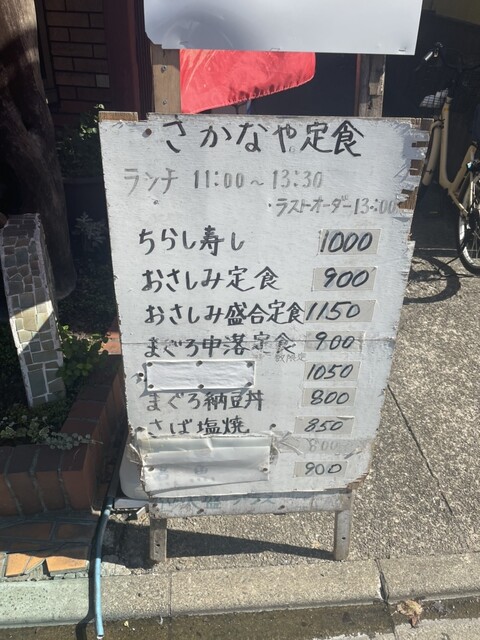 さかなや定食
ランチ 11:00~13:30
・ラストオーダー13:00
ちらし寿し 1000
おさしみ定食 900
おさしみ盛合定食 1150
まぐろ中落定食 900
数限定
1050
まぐろ納豆丼 800
さば塩焼 850
800
900